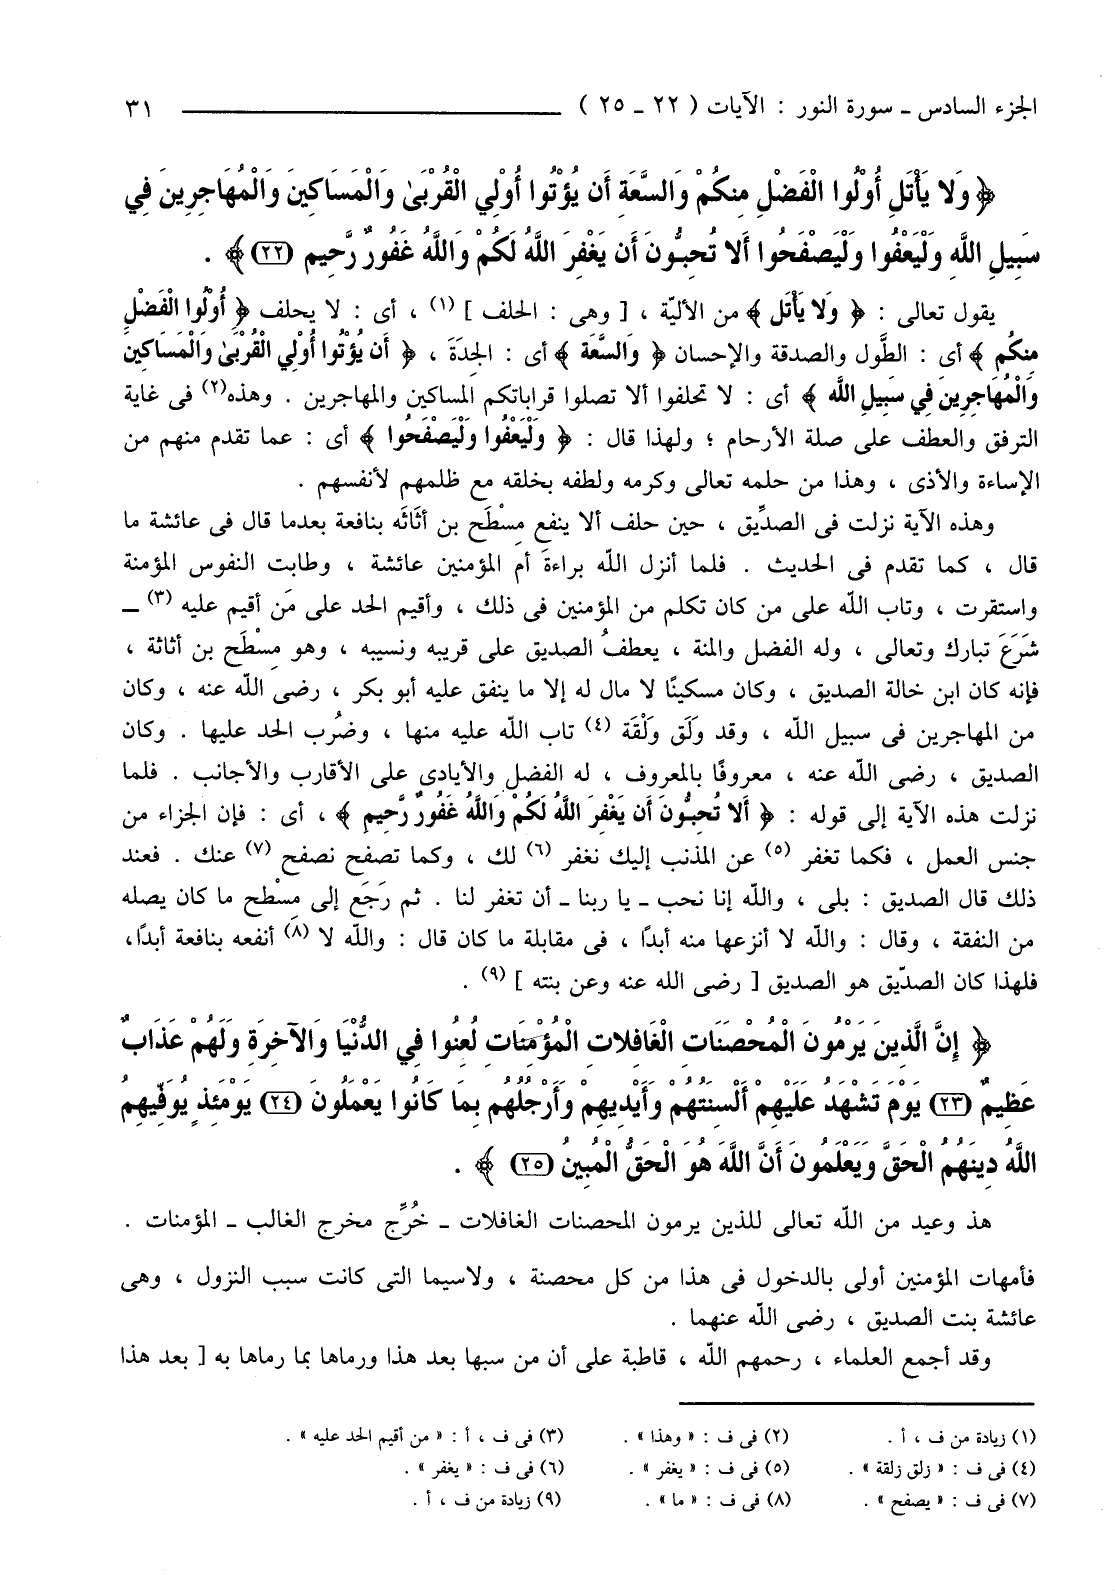 الجزء السادس ـ سورة النور : الآيات ( ٢٢ ـ ٢٥ ) ٣١
﴿ وَلا يَأْتَلِ أُوْلُوا الْفَضْلِ مِنكُمْ وَالسَّعَةِ أَن يُؤْتُوا أُوْلِي الْقُرْبَىٰ وَالْمَسَاكِينَ وَالْمُهَاجِرِينَ فِي
سَبِيلِ اللَّهِ وَلْيَعْفُوا وَلْيَصْفَحُوا أَلا تُحِبُّونَ أَن يَغْفِرَ اللَّهُ لَكُمْ وَاللَّهُ غَفُورٌ رَّحِيم (٢٢) ﴾ .
يقول تعالى : ﴿ وَلا يَأْتَلِ ﴾ من الأليّة ، [ وهى : الحلف ] (١) ، أى : لا يحلف ﴿ أُوْلُوا الْفَضْلِ
مِنكُم ﴾ أى : الطَّول والصدقة والإحسان ﴿ وَالسَّعَة ﴾ أى : الجِدَةَ ، ﴿ أَن يُؤْتُوا أُوْلِي الْقُرْبَىٰ وَالْمَسَاكِين
وَالْمُهَاجِرِينَ فِي سَبِيلِ اللَّه ﴾ أى : لا تحلفوا ألا تصلوا قراباتكم المساكين والمهاجرين . وهذه(٢) فى غاية
الترفق والعطف على صلة الأرحام ؛ ولهذا قال : ﴿ وَلْيَعْفُوا وَلْيَصْفَحُوا ﴾ أى : عما تقدم منهم من
الإساءة والأذى ، وهذا من حلمه تعالى وكرمه ولطفه بخلقه مع ظلمهم لأنفسهم .
وهذه الآية نزلت فى الصدِّيق ، حين حلف ألا ينفع مِسْطَح بن أثَاثَه بنافعة بعدما قال فى عائشة ما
قال ، كما تقدم فى الحديث . فلما أنزل الله براءةَ أم المؤمنين عائشة ، وطابت النفوس المؤمنة
واستقرت ، وتاب الله على من كان تكلم من المؤمنين فى ذلك ، وأقيم الحد على مَن أقيم عليه (٣) ـ
شَرَعَ تبارك وتعالى ، وله الفضل والمنة ، يعطفُ الصديق على قريبه ونسيبه ، وهو مِسْطَح بن أثاثة ،
فإنه كان ابن خالة الصديق ، وكان مسكينًا لا مال له إلا ما ينفق عليه أبو بكر ، رضى الله عنه ، وكان
من المهاجرين فى سبيل الله ، وقد وَلَق وَلْقَة (٤) تاب الله عليه منها ، وضُرب الحد عليها . وكان
الصديق ، رضى الله عنه ، معروفًا بالمعروف ، له الفضل والأيادى على الأقارب والأجانب . فلما
نزلت هذه الآية إلى قوله : ﴿ أَلا تُحِبُّونَ أَن يَغْفِرَ اللَّهُ لَكُمْ وَاللَّهُ غَفُورٌ رَّحِيمٍ ﴾ ، أى : فإن الجزاء من
جنس العمل ، فكما تغفر (٥) عن المذنب إليك نغفر (٦) لك ، وكما تصفح نصفح (٧) عنك . فعند
ذلك قال الصديق : بلى ، والله إنا نحب ـ يا ربنا ـ أن تغفر لنا . ثم رَجَع إلى مِسْطح ما كان يصله
من النفقة ، وقال : والله لا أنزعها منه أبدًا ، فى مقابلة ما كان قال : والله لا (٨) أنفعه بنافعة أبدًا،
فلهذا كان الصدّيق هو الصديق [ رضى الله عنه وعن بنته ] (٩) .
﴿ إِنَّ الَّذِينَ يَرْمُونَ الْمُحْصَنَاتِ الْغَافِلاتِ الْمُؤْمِنَاتِ لُعِنُوا فِي الدُّنْيَا وَالآخِرَةِ وَلَهُمْ عَذَابٌ
عَظِيمٌ (٢٣) يَوْمَ تَشْهَدُ عَلَيْهِمْ أَلْسِنَتُهُمْ وَأَيْدِيهِمْ وَأَرْجُلُهُم بِمَا كَانُوا يَعْمَلُونَ (٢٤) يَوْمَئِذٍ يُوَفِّيهِمُ
اللَّهُ دِينَهُمُ الْحَقَّ وَيَعْلَمُونَ أَنَّ اللَّهَ هُوَ الْحَقُّ الْمُبِينُ (٢٥) ﴾ .
هذ وعيد من الله تعالى للذين يرمون المحصنات الغافلات ـ خُرِّج مخرج الغالب ـ المؤمنات .
فأمهات المؤمنين أولى بالدخول فى هذا من كل محصنة ، ولاسيما التى كانت سبب النزول ، وهى
عائشة بنت الصديق ، رضى الله عنهما .
وقد أجمع العلماء ، رحمهم الله ، قاطبة على أن من سبها بعد هذا ورماها بما رماها به [ بعد هذا
(١) زيادة من ف ، أ . (٢) فى ف : « وهذا » . (٣) فى ف ، أ : « من أقيم الحد عليه » .
(٤) فى ف : « زلق زلقة » . (٥) فى ف : « يغفر » . (٦) فى ف : « يغفر » .
(٧) فى ف : « يصفح » . (٨) فى ف : « ما » . (٩) زيادة من ف ، أ .